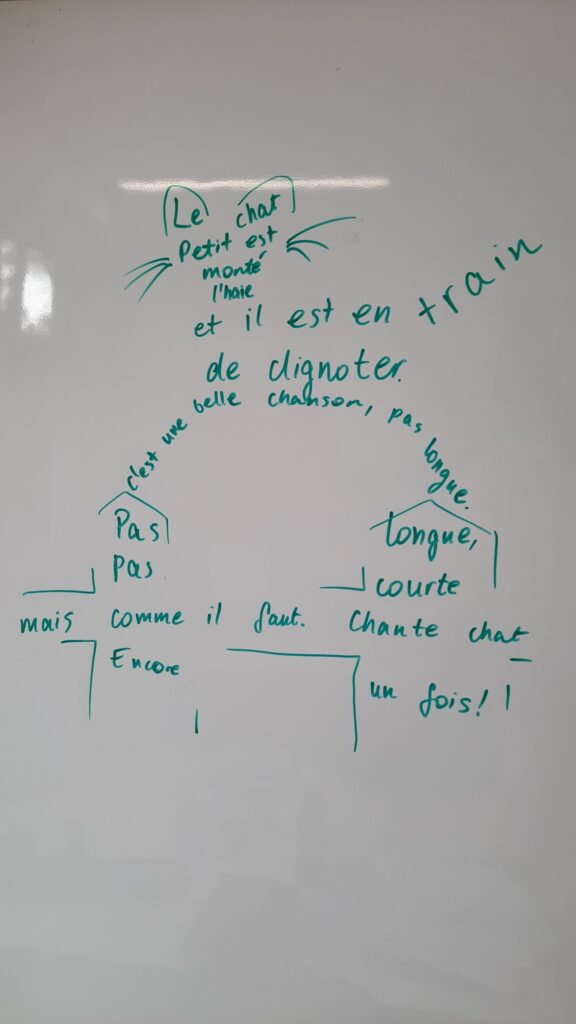 Le chat
Petit est
monté
l'haie
et il est en train
de clignoter.
c'est une belle chanson, pas longue.
Pas longue,
pas courte
mais comme il faut. Chante chat
Encore un fois!